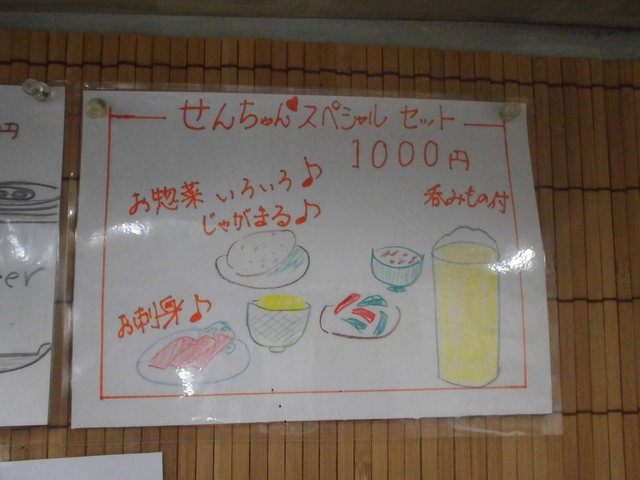 せんちゃん♥スペシャル セット
1000円
お惣菜 いろいろ♪
じゃがまる♪
呑みもの付
お刺身♪
円
er